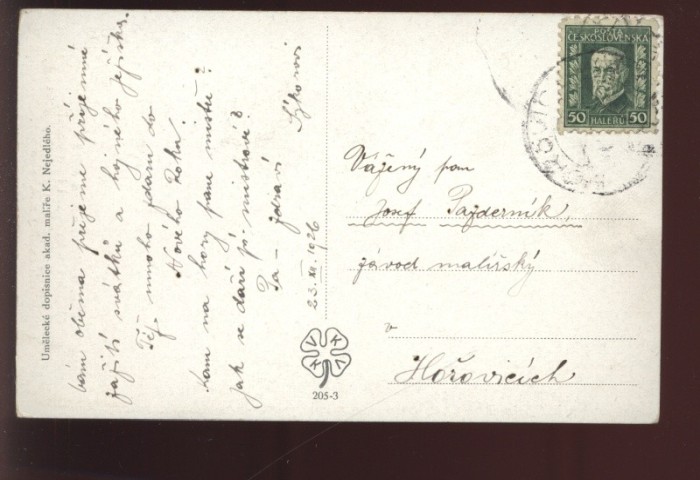 Umělecké dopisnice akad. malíře K. Nejedlého.
vám oběma přejeme příjemné
zažití svátků a hojného Ježíška.
Též mnoho zdaru do
Nového Roka
kam na hory pane mistře?
jak se daří pí. mistrové?
Pa – zdraví
23. XII. 1926
VKVK
205-3
POŠTA
ČESKOSLOVENSKÁ
50 HALÉŘŮ 50
Vážený pan
Josef Pazderník,
závod malířský
v
Hořovicích